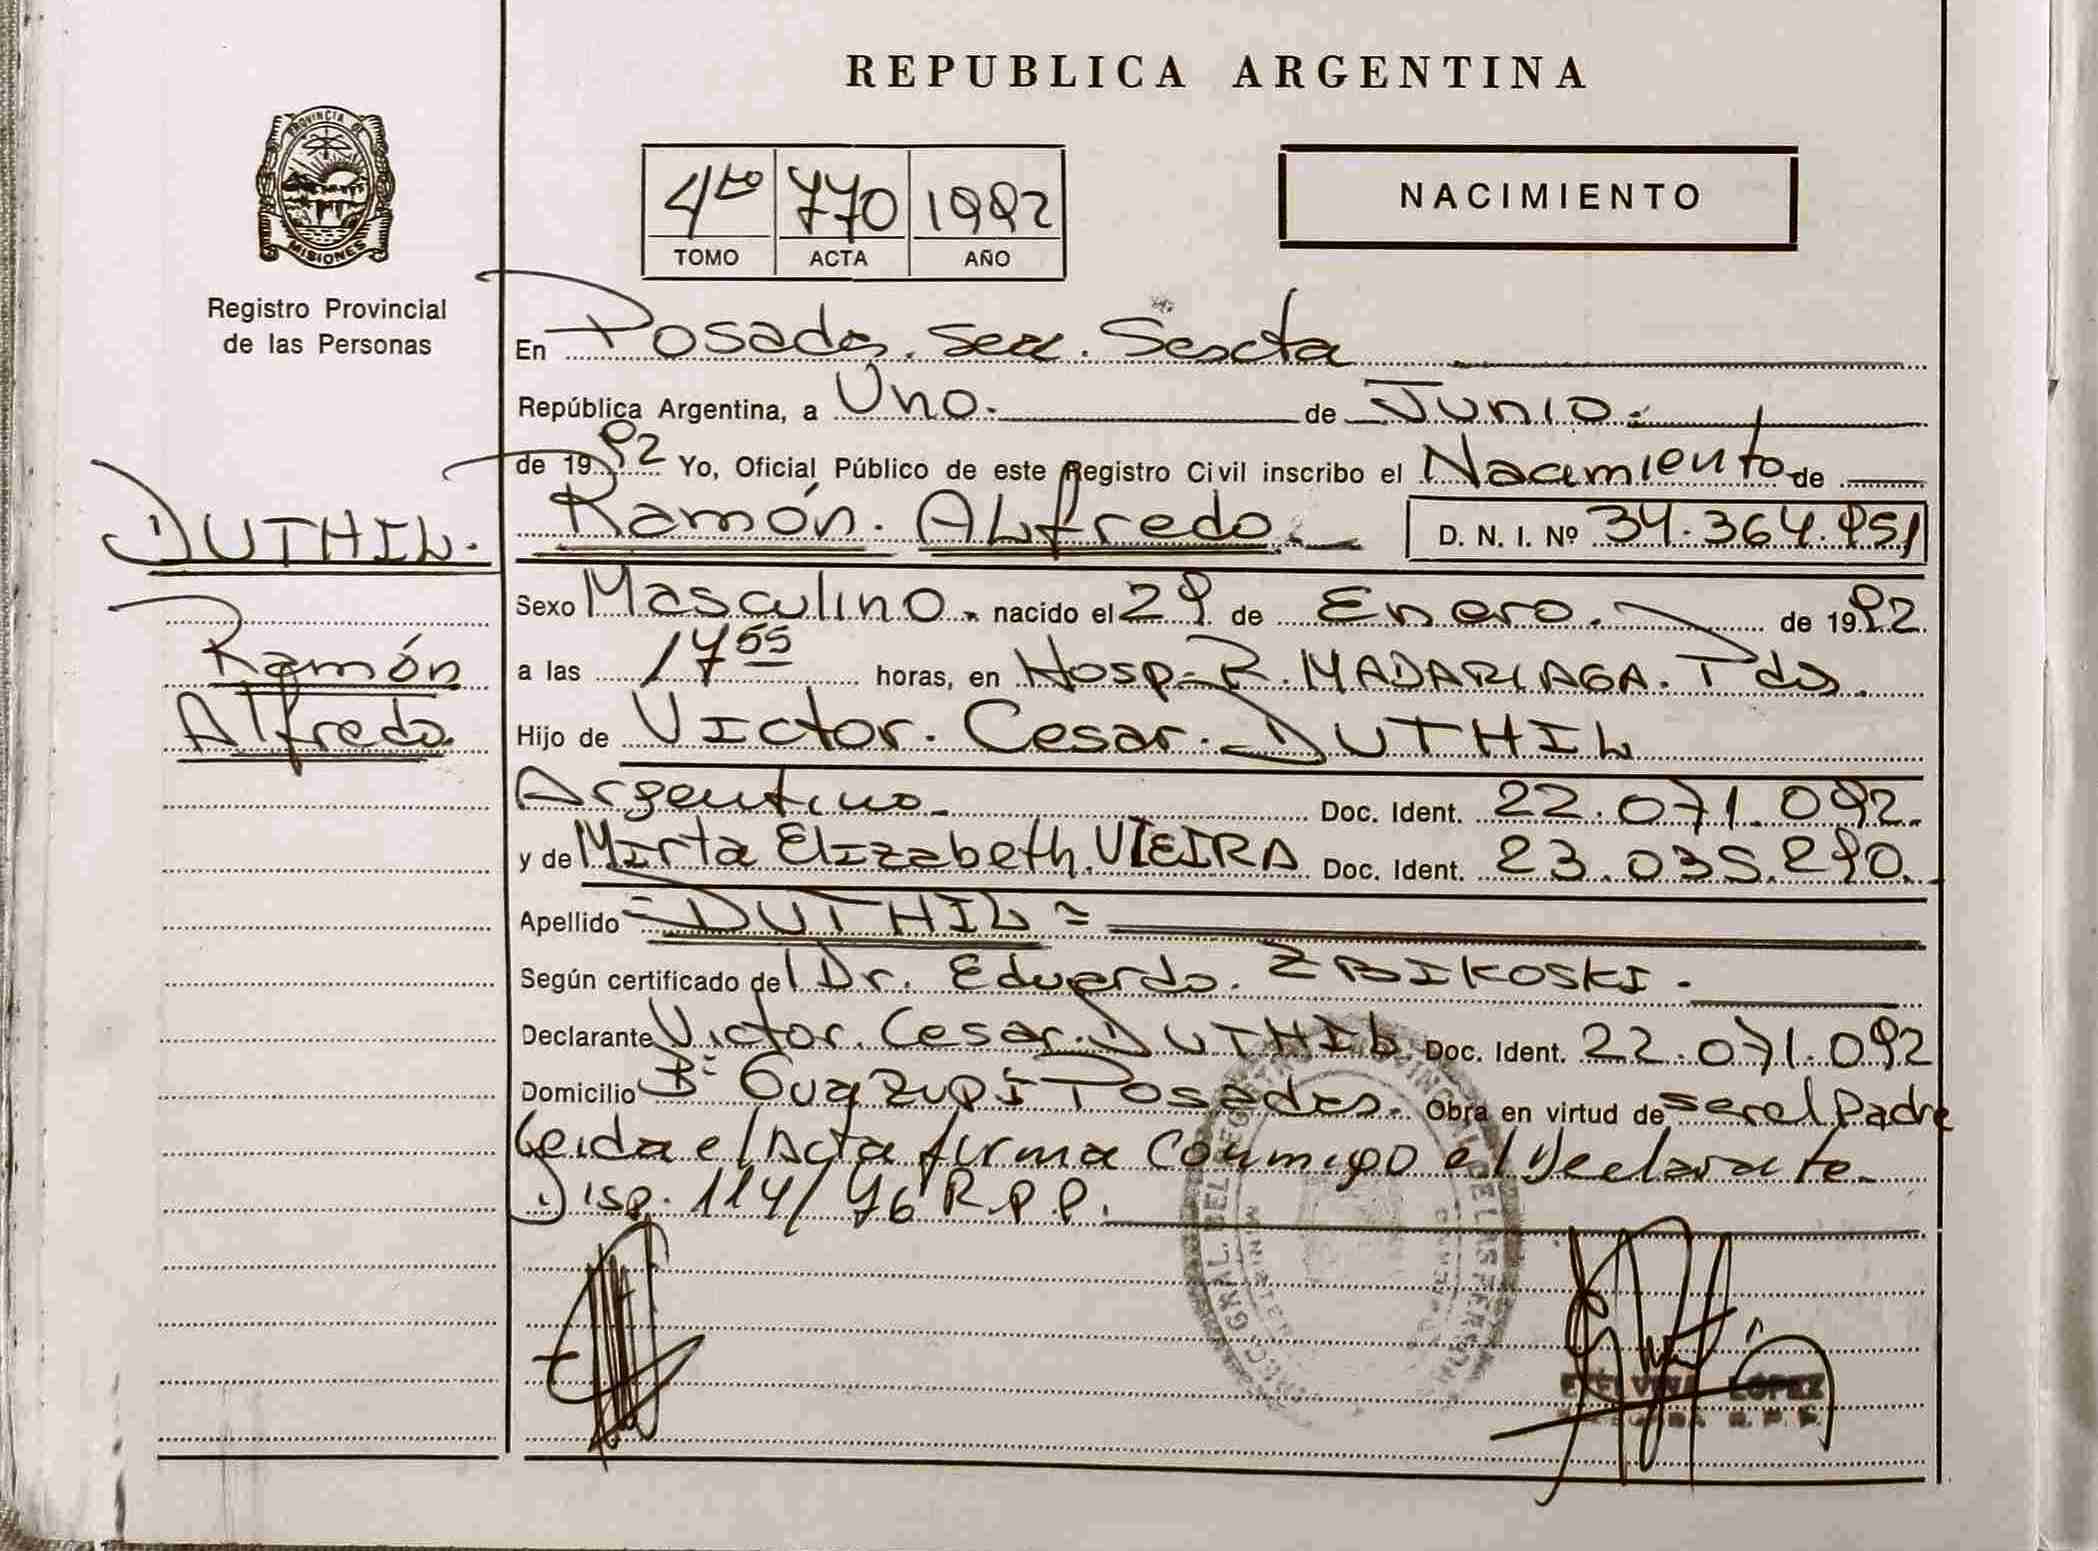 REPUBLICA ARGENTINA
PROVINCIA DE
MISIONES
Registro Provincial
de las Personas
4to 770 1992
TOMO ACTA AÑO
NACIMIENTO
En Posadas. Secc. Sexta
República Argentina, a Uno. de Junio.
de 1992 Yo, Oficial Público de este Registro Civil inscribo el Nacimiento de
DUTHIL.
Ramón. Alfredo. D. N. I. Nº 34.364.951
Sexo Masculino. nacido el 29 de Enero. de 1992.
Ramón
Alfredo
a las 17 55 horas, en Hosp. R. MADARIAGA. Pdas.
Hijo de Victor. Cesar. DUTHIL
Argentino. Doc. Ident. 22.071.092.
y de Mirta Elizabeth. VIEIRA Doc. Ident. 23.035.290.
Apellido =DUTHIL=
Según certificado del Dr. Eduardo. ZBIKOSKI.
Declarante Victor. Cesar. DUTHIL Doc. Ident. 22.071.092
Domicilio Bº Guazupi Posadas. Obra en virtud de ser el Padre
Leida el Acta firma conmigo el Declarante.
Disp. 114/76 R.P.P.
LOPEZ